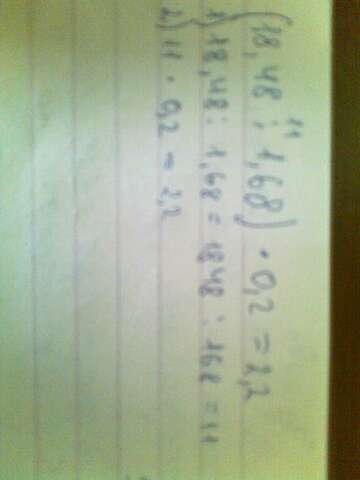 11
(18,48 : 1,68) · 0,2 = 2,2
1) 18,48 : 1,68 = 1848 : 168 = 11
2) 11 · 0,2 = 2,2